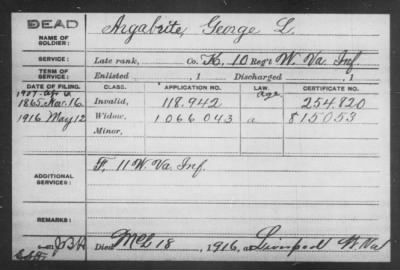 DEAD
NAME OF SOLDIER: Argabrite, George L.
SERVICE: Late rank, Co. K, 10 Reg't W. Va. Inf
TERM OF SERVICE: Enlisted , 1 Discharged , 1
DATE OF FILING. CLASS. APPLICATION NO. LAW. CERTIFICATE NO.
1865 Mar. 16 Invalid, 118.942 age 254.820
1916 May 12 Widow, 1066043 a 815053
Minor,
ADDITIONAL SERVICES: F, 11 W. Va. Inf.
REMARKS:
Died Mch 18, 1916, at Liverpool W. Va